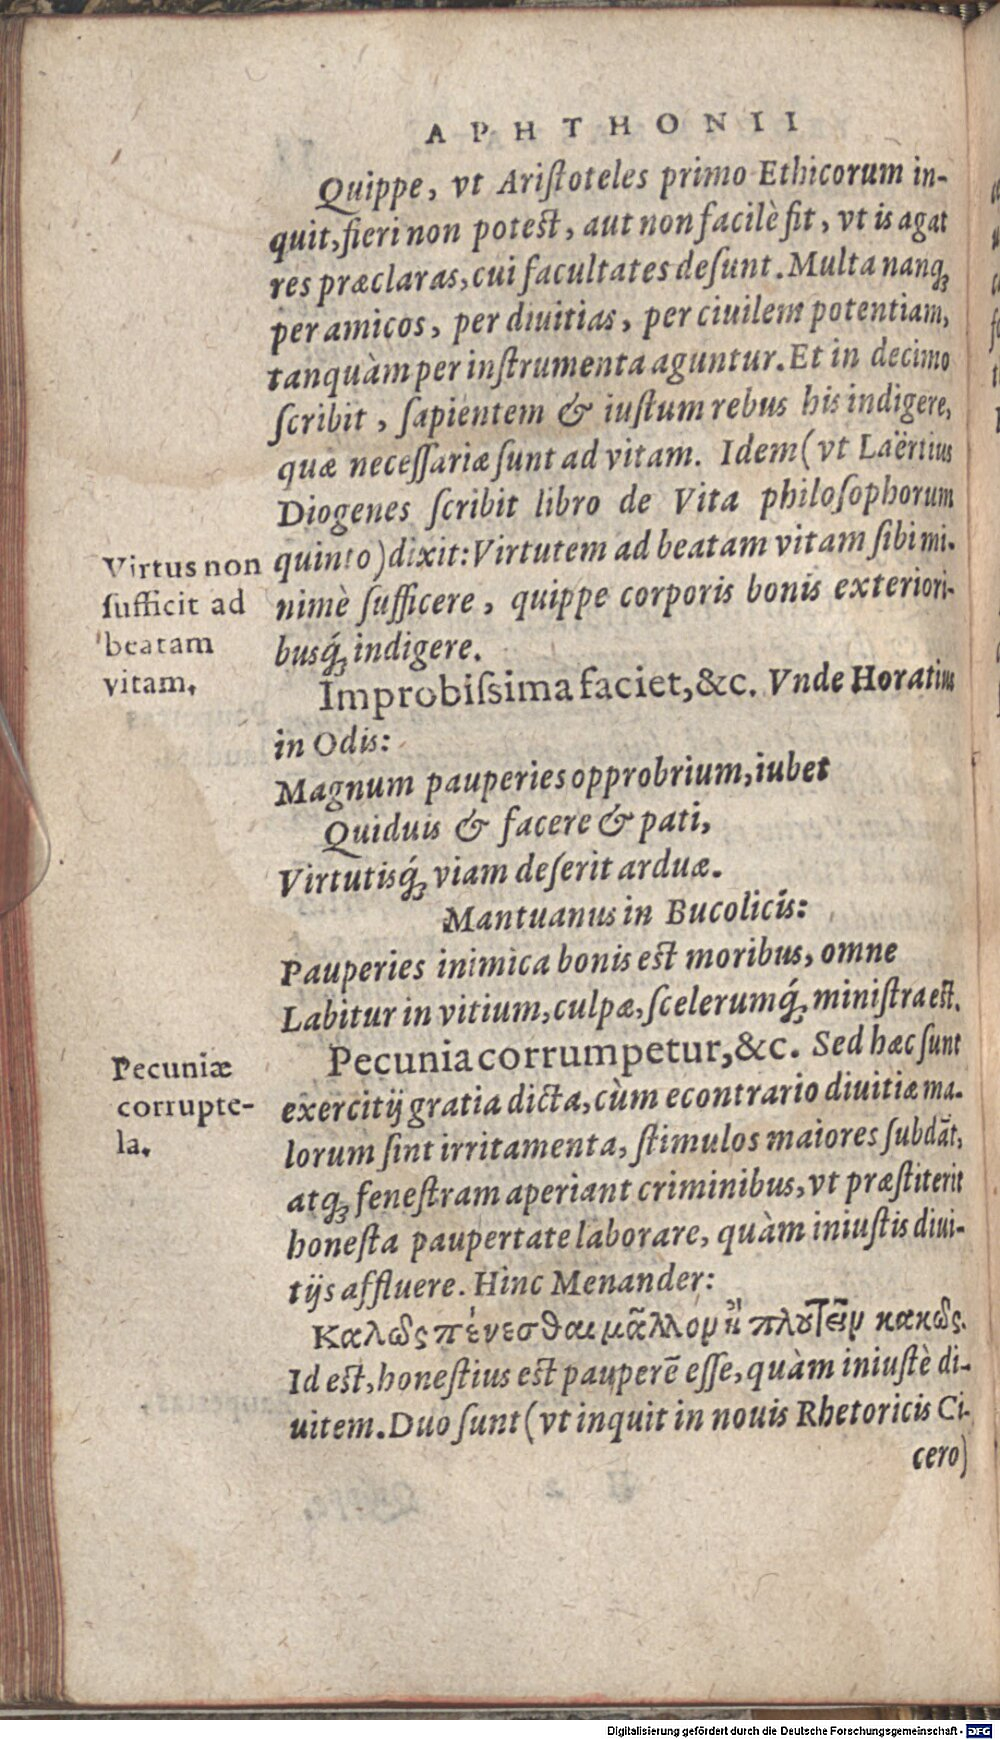 APHTHONII
Quippe, vt Aristoteles primo Ethicorum in-
quit, fieri non potest, aut non facilè fit, vt is agat
res præclaras, cui facultates desunt. Multa nanq;
per amicos, per diuitias, per ciuilem potentiam,
tanquàm per instrumenta aguntur. Et in decimo
scribit, sapientem & iustum rebus his indigere,
quæ necessariæ sunt ad vitam. Idem (vt Laërtius
Diogenes scribit libro de Vita philosophorum
quinto) dixit: Virtutem ad beatam vitam sibi mi-
nimè sufficere, quippe corporis bonis exteriori-
busq́; indigere.
Virtus non
sufficit ad
beatam
vitam.
Improbissima faciet, &c. Vnde Horatius
in Odis:
Magnum pauperies opprobrium, iubet
Quiduis & facere & pati,
Virtutisq́; viam deserit arduæ.
Mantuanus in Bucolicis:
Pauperies inimica bonis est moribus, omne
Labitur in vitium, culpæ, scelerumq́; ministra est.
Pecunia corrumpetur, &c. Sed hæc sunt
exercitij gratia dicta, cùm econtrario diuitiæ ma-
lorum sint irritamenta, stimulos maiores subdāt,
atq; fenestram aperiant criminibus, vt præstiterit
honesta paupertate laborare, quàm iniustis diui-
tijs affluere. Hinc Menander:
Pecuniæ
corrupte-
la.
Καλῶς πένεσθαι μᾶλλον ἢ πλουτεῖν κακῶς.
Id est, honestius est pauperē esse, quàm iniustè di-
uitem. Duo sunt (vt inquit in nouis Rhetoricis Ci-
cero)
Digitalisierung gefördert durch die Deutsche Forschungsgemeinschaft - DFG